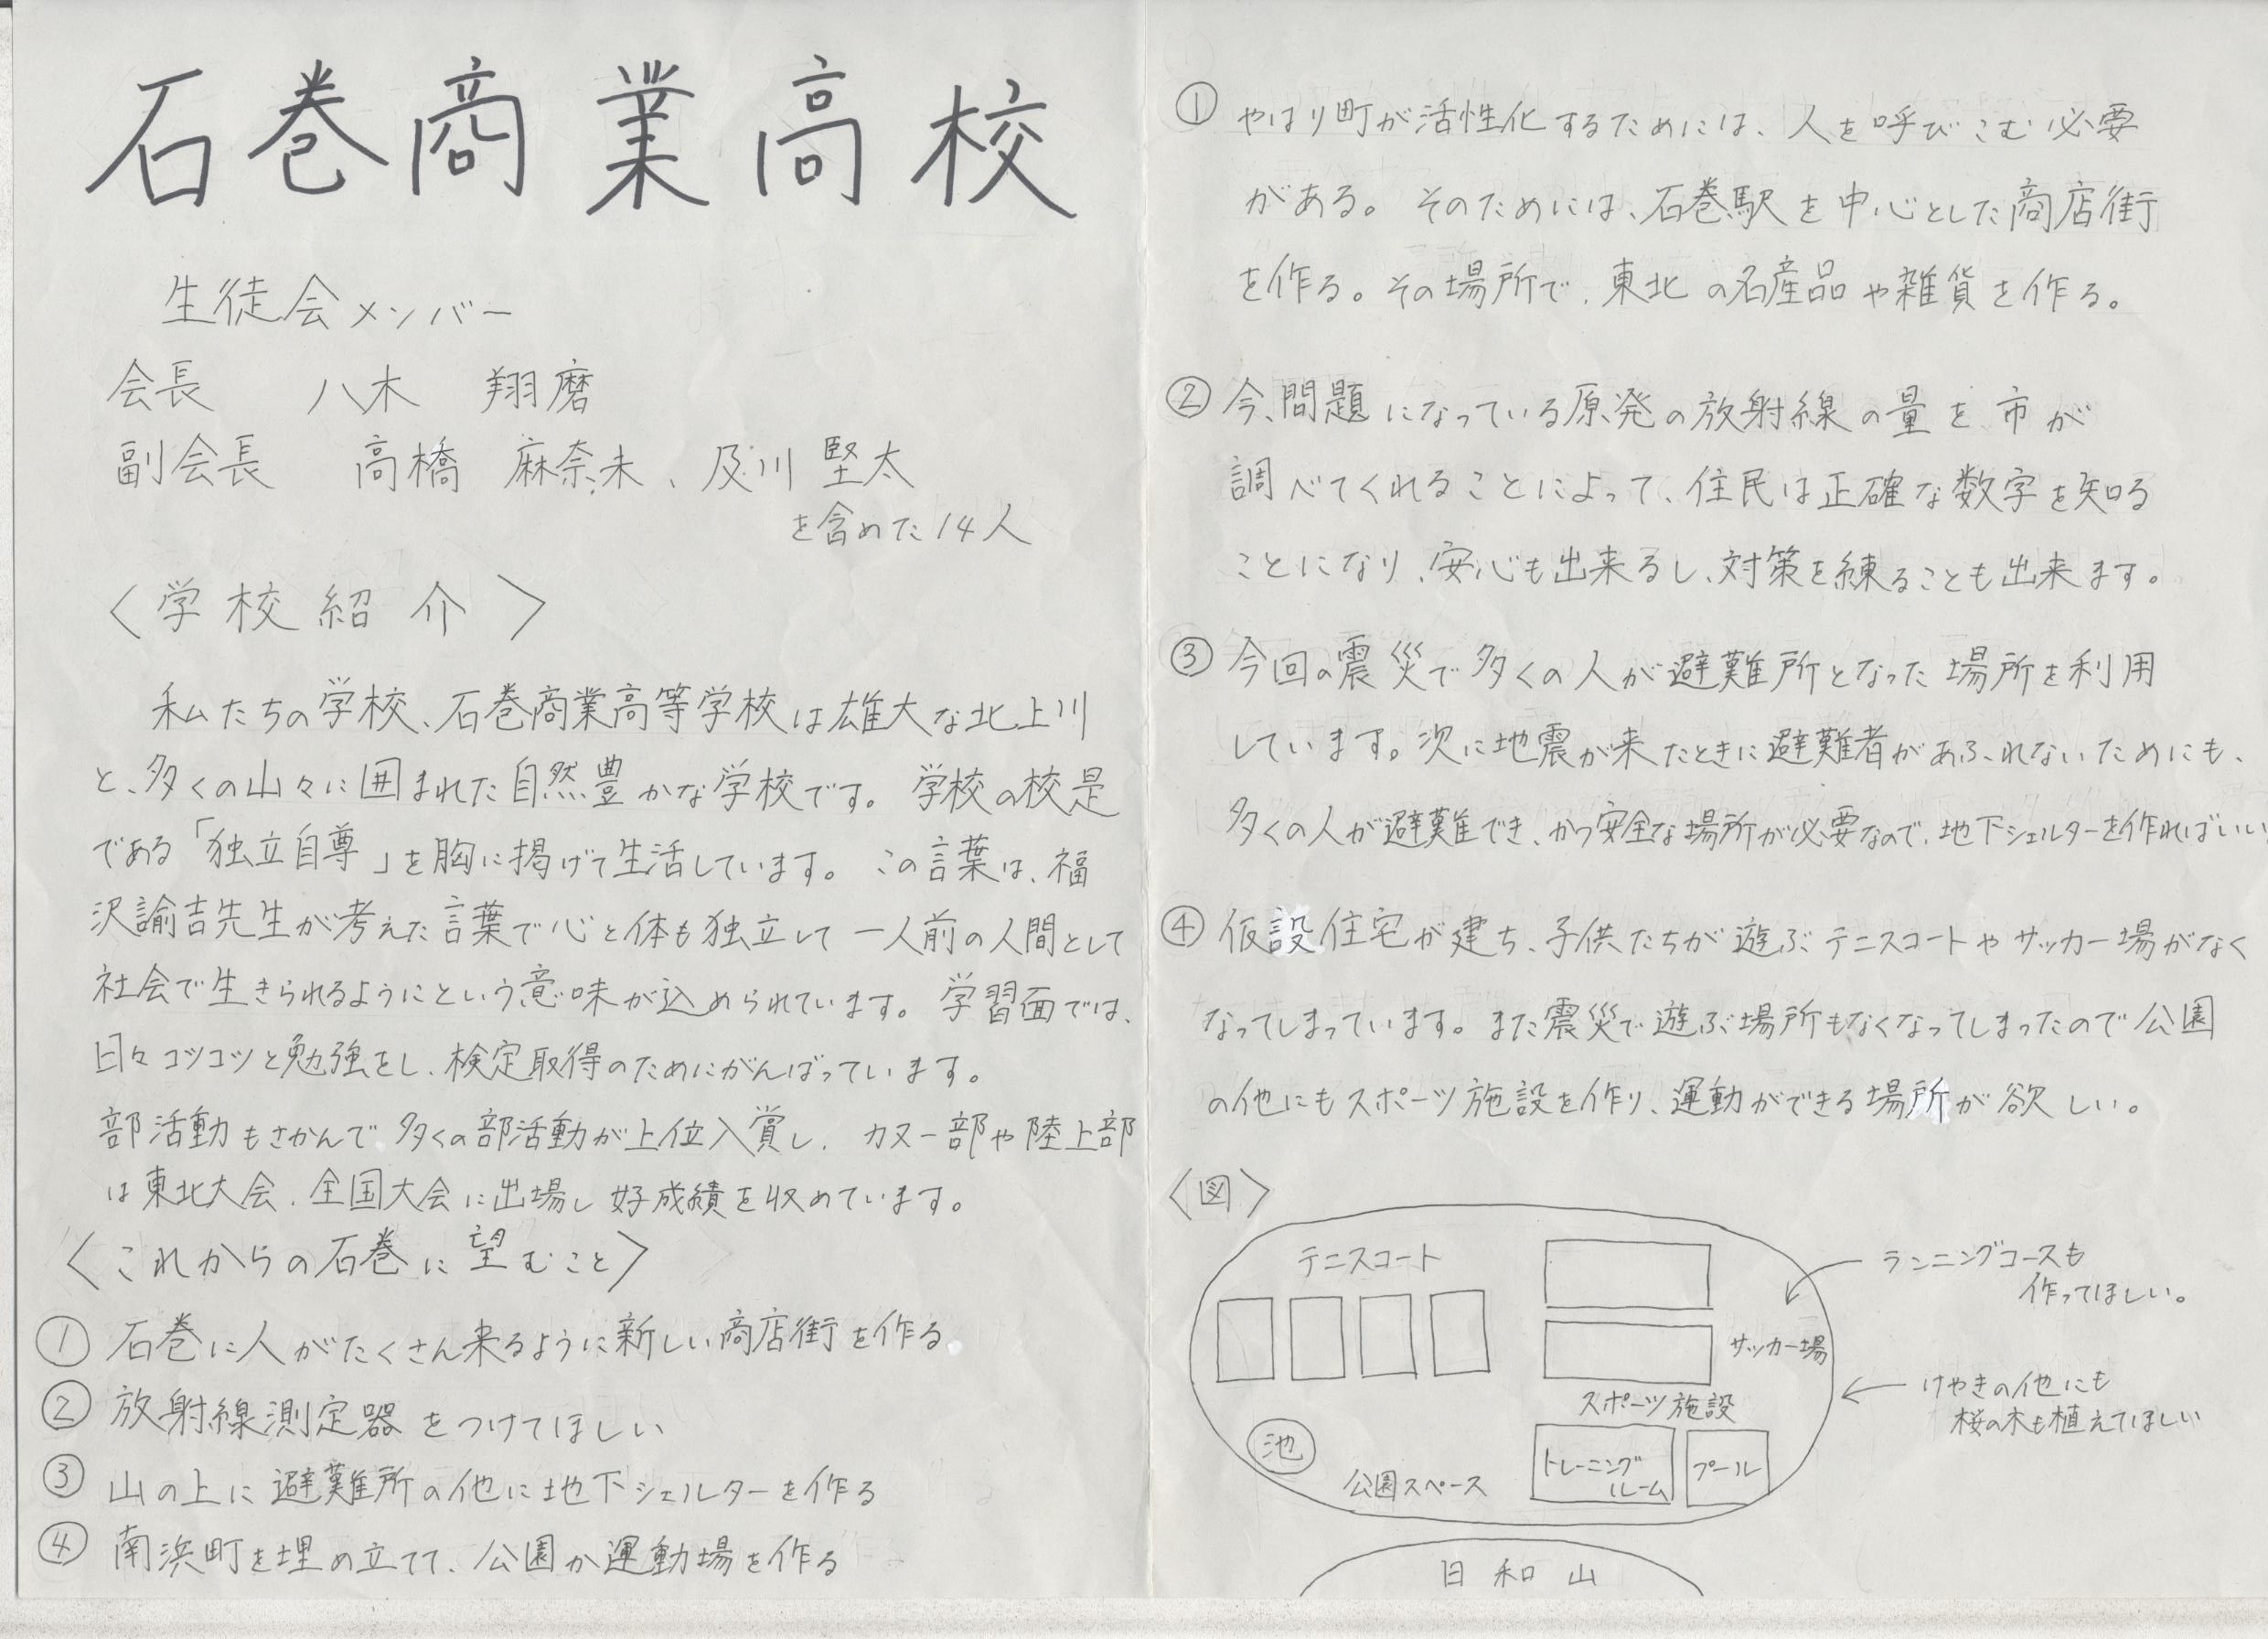 石巻商業高校
生徒会メンバー
会長 八木 翔磨
副会長 高橋 麻奈未、及川 堅太
を含めた14人
〈学校紹介〉
私たちの学校、石巻商業高等学校は雄大な北上川
と、多くの山々に囲まれた自然豊かな学校です。学校の校是
である「独立自尊」を胸に掲げて生活しています。この言葉は、福
沢諭吉先生が考えた言葉で心と体も独立して一人前の人間として
社会で生きられるようにという意味が込められています。学習面では、
日々コツコツと勉強をし、検定取得のためにがんばっています。
部活動もさかんで、多くの部活動が上位入賞し、カヌー部や陸上部
は東北大会、全国大会に出場し好成績を収めています。
〈これからの石巻に望むこと〉
① 石巻に人がたくさん来るように新しい商店街を作る。
② 放射線測定器をつけてほしい
③ 山の上に避難所の他に地下シェルターを作る
④ 南浜町を埋め立てて、公園か運動場を作る
① やはり町が活性化するためには、人を呼びこむ必要
がある。そのためには、石巻駅を中心とした商店街
を作る。その場所で、東北の名産品や雑貨を作る。
② 今、問題になっている原発の放射線の量を市が
調べてくれることによって、住民は正確な数字を知る
ことになり、安心も出来るし、対策を練ることも出来ます。
③ 今回の震災で多くの人が避難所となった場所を利用
しています。次に地震が来たときに避難者があふれないためにも、
多くの人が避難でき、かつ安全な場所が必要なので、地下シェルターを作ればいい
④ 仮設住宅が建ち、子供たちが遊ぶテニスコートやサッカー場がなく
なってしまっています。また震災で遊ぶ場所もなくなってしまったので公園
の他にもスポーツ施設を作り、運動ができる場所が欲しい。
〈図〉
テニスコート
ランニングコースも
作ってほしい。
サッカー場
けやきの他にも
桜の木も植えてほしい
スポーツ施設
池
公園スペース
トレーニング
ルーム
プール
日和山